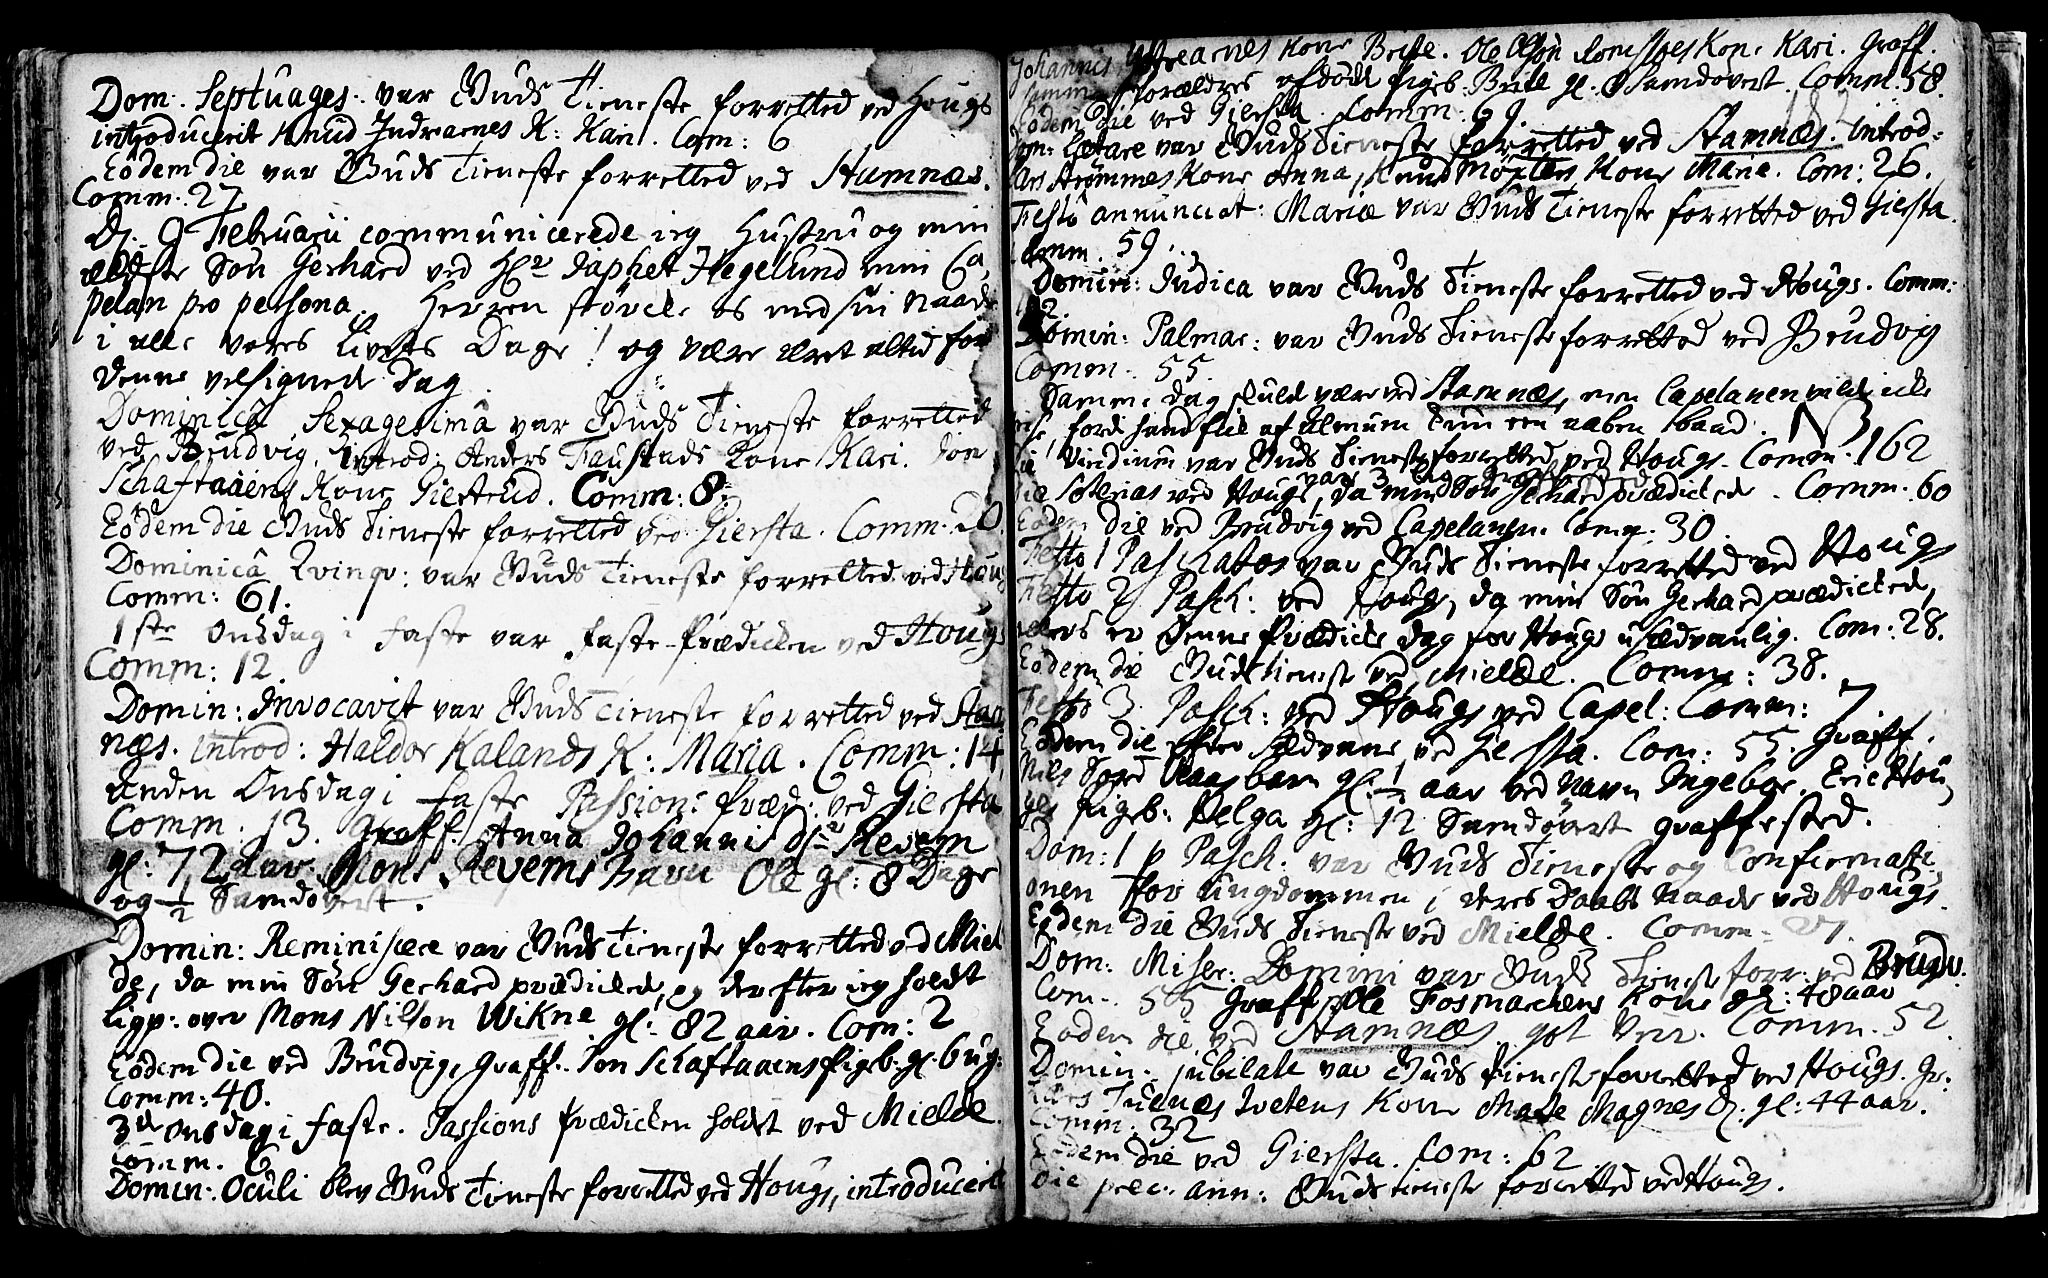 Dom: Septuages: var Guds Tieneste forretted ved Hougs
introducerit Knud Indrearnes K: Kari. Com: 6
Eodem die var Guds Tieneste forretted ved Stamnæs.
Comm: 27.
D. 9 Februarii communicerede ieg Hustru og min
ældste Søn Gerhard ved Hr Japhet Hegelund min Ca,
pelan pro persona. Herren støvele os med sin Naade
i alle vores Livets Dage! og være æret altid for
denne velsigned Dag.
Dominica Sexagesima var Guds Tieneste forretted
ved Brudvig. Introd: Anders Faustads Kone Kari. Jon
Schaftaaens Kone Giertrud. Comm: 8.
Eodem die Guds Tieneste forretted ved Giersta. Comm: 20
Dominica Qvinqv: var Guds Tieneste forretted ved Houg
Comm: 61.
1ste Onsdag i Faste var Faste-Prædicken ved Hougs
Comm: 12.
Domin: Invocavit var Guds Tieneste forretted ved Stam,
næs. introd: Haldor Kalands K: Maria. Comm: 14
Anden Onsdag i Faste Passions Præd: ved Giersta
Comm. 13. Graff. Anna Johannis dr Revem
gl: 72 aar. Mons Revems Barn Ole gl: 8 Dage
og 1/2 Samdøvert.
Domin: Reminiscere var Guds Tieneste forretted ved Miel
de, da min Søn Gerhard prædicked, og derefter ieg holdt
ligpr: over Mons Nilson Wikne gl: 82 aar. Com: 2
Eodem die ved Brudvig, Graff. Jon Schaftaaens pigeb: gl. 6 ug:
Comm: 40.
3die Onsdag i Faste. Passions Prædicken holdt ved Mielde.
Comm. 6
Domin: Oculi blev Guds Tieneste forretted ved Hougs, introducerit
Johannis Ystrearnes Kone Brite. Ole Olson Kone Kari. Graff.
forældres afdøde pigeb: Brite gl. 8 Samdøvert. Comm: 58.
Eodem die ved Giersta. Comm: 69.
Dom: Lætare var Guds Tieneste forretted ved Stamnæs. Introd:
Lars Strømmes Kone Anna, Knud Møxters Kone Marie. Com: 26.
Festo annunciat: Mariæ var Guds Tieneste forretted ved Giersta.
Comm. 59.
Domin: Judica var Guds Tieneste forretted ved Hougs. Comm:
Domin: Palmar: var Guds Tieneste forretted ved Brudvig
Comm. 55.
Samme dag skulde være ved Stamnæs, men Capelanen vilde icke
reise, fordi hand fick af Almuen kun een aaben baad. NB
die Viridium var Guds Tieneste forretted ved Hougs. Comm. 162
die Soterias ved Hougs, da min Søn Gerhard prædicked. Comm. 60
Eodem die ved Brudvig ved Capelanen. Comm: 30.
Festo 1 Paschatos var Guds Tieneste forretted ved Hougs
Festo 2 Pasch: ved Hougs, da min Søn Gerhard prædicked,
ellers er denne Prædicke dag for Hougs usædvanlig. Com: 28.
Eodem die Guds tieneste ved Mielde. Comm: 38.
Festo 3. Pasch: ved Hougs ved Capel: Comm: 7.
Eodem die efter Sædvane ved Giersta. Com: 55. Graff.
Nils barn gl: 1/2 aar ved Navn Ingebor. Eric Hou,
ges pigeb: Helga gl: 12 Samdøvert graffested.
Dom: 1 p Pasch: var Guds Tieneste og Confirmati,
onen for ungdommen i deres Daabs Naade ved Hougs.
Eodem die Guds Tieneste ved Mielde. Comm. 27.
Dom: Miser: Domini var Guds Tienest forr: ved Brudv.
Com. 55 Graff Ole Fosmarckens Kone gl: 48 aar
Eodem die ved Stamnæs. Comm. 52.
Domin: Jubilate var Guds Tieneste forretted ved Hougs. Gr.
Kone Mate Magnes D. gl: 44 aar.
Comm. 32
Eodem die ved Giersta. Com: 62
Die prec: ann: Guds tieneste forretted ved Hougs.